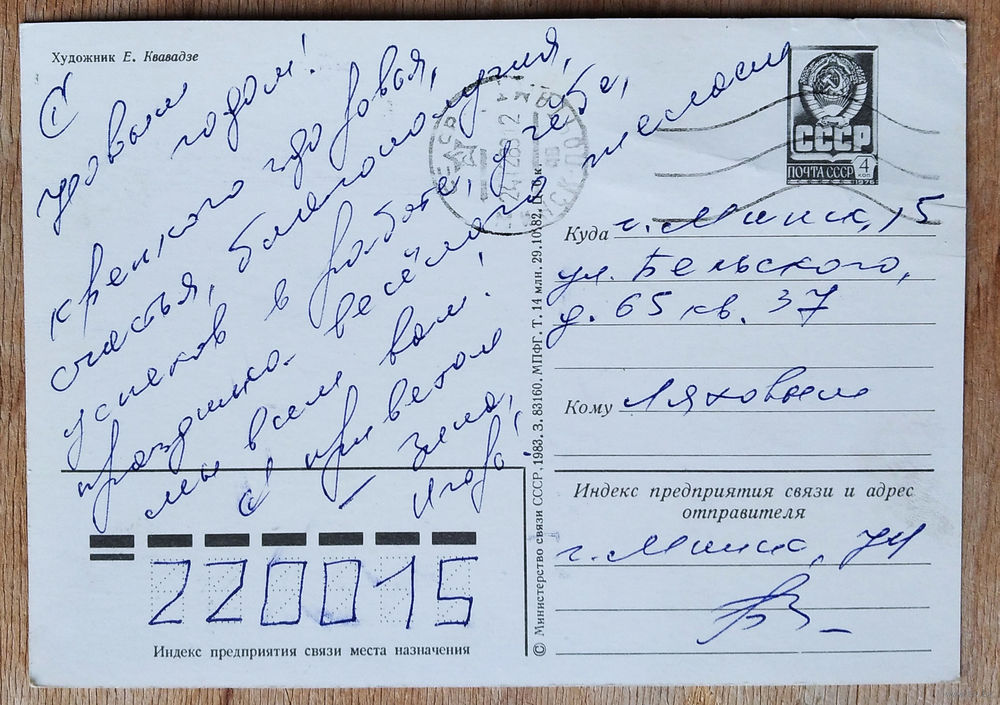 Художник Е. Квавадзе
С
новым годом!
крепкого здоровья,
счастья, благополучия,
успехов в работе, учебе,
праздника весёлого желаем
мы всем вам!
С приветом
— Зина,
Игорь
220015
Индекс предприятия связи места назначения
© Министерство связи СССР. 1983. З. 83160. МПФГ. Т. 14 млн. 29.10.82. Ц. 5 к.
СССР
ПОЧТА СССР
4
коп
1976
Куда г. Минск, 15
ул. Бельского,
д. 65 кв. 37
Кому Ляховым
Индекс предприятия связи и адрес
отправителя
г. Минск,